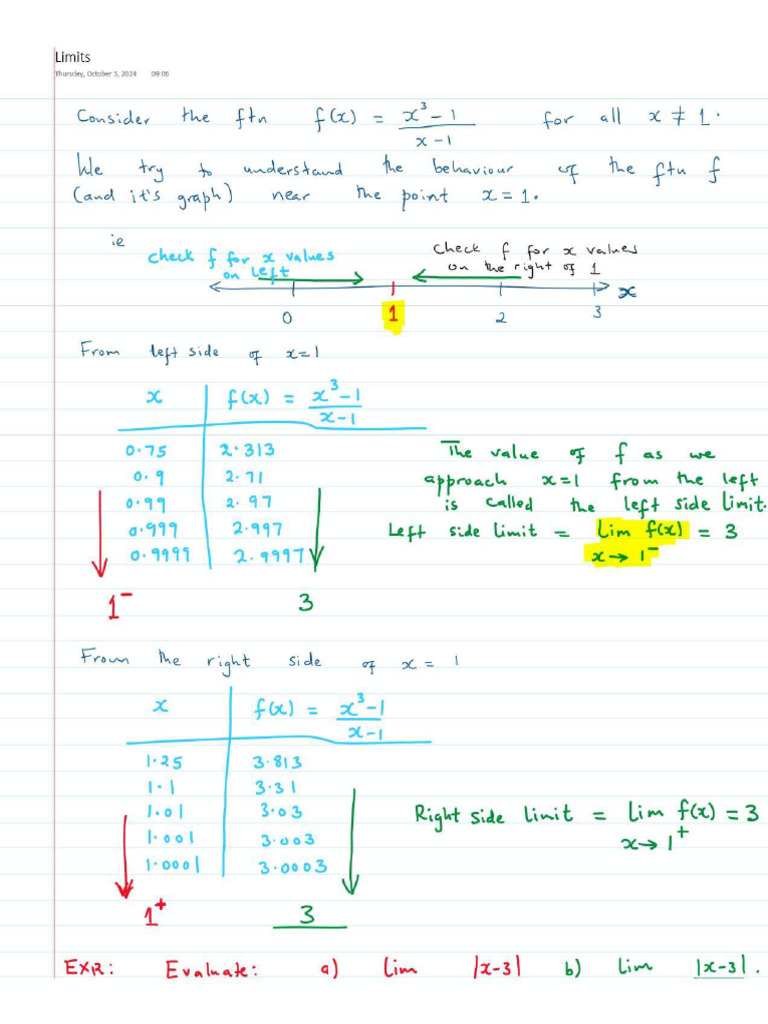 Limits
Thursday, October 3, 2024 09:06
Consider the ftn f(x) = x³-1 / x-1 for all x ≠ 1.
We try to understand the behaviour of the ftn f
(and it's graph) near the point x=1.
ie
check f for x values
on left
Check f for x values
on the right of 1
x
0 1 2 3
From left side of x=1
x f(x) = x³-1 / x-1
0.75 2.313
0.9 2.71
0.99 2.97
0.999 2.997
0.9999 2.9997
1⁻ 3
The value of f as we
approach x=1 from the left
is called the left side limit.
Left side limit = lim f(x) = 3
x→1⁻
From the right side of x = 1
x f(x) = x³-1 / x-1
1.25 3.813
1.1 3.31
1.01 3.03
1.001 3.003
1.0001 3.0003
1⁺ 3
Right side limit = lim f(x) = 3
x→1⁺
EXR: Evaluate: a) lim |x-3| b) lim |x-3|.